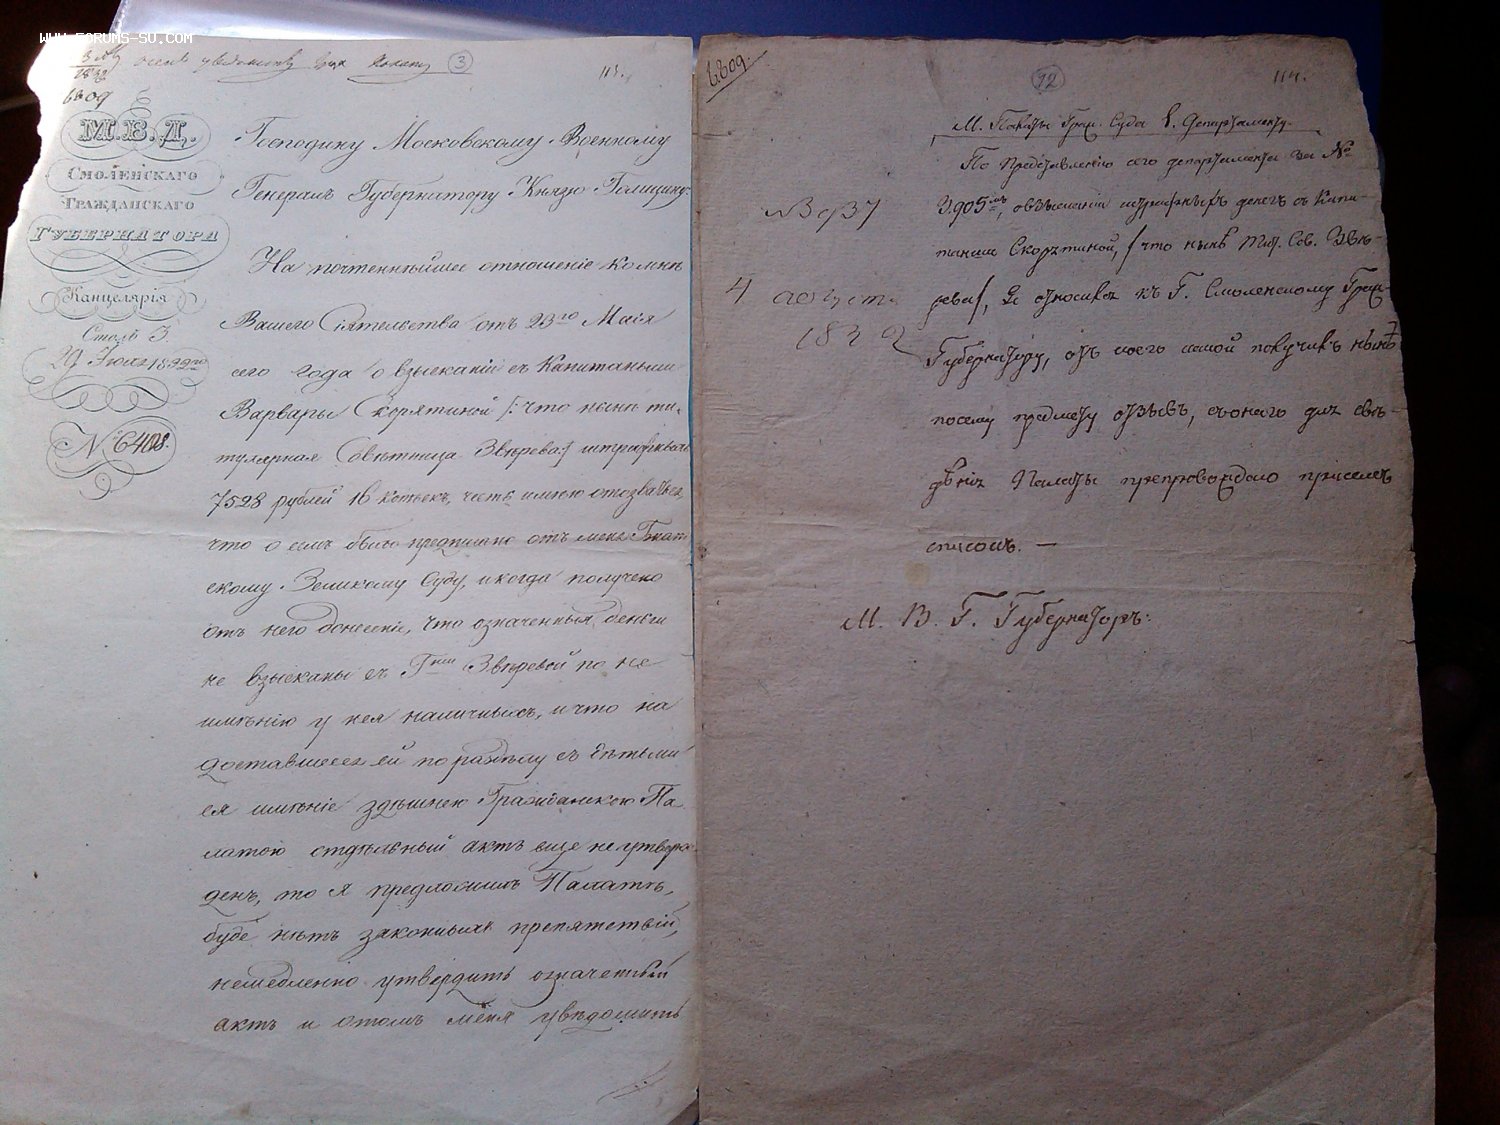 WWW.FORUMS-SU.COM
3
113.
1832
М.В.Д.
СМОЛЕНСКАГО
ГРАЖДАНСКАГО
ГУБЕРНАТОРА
Канцелярія
Столъ 3.
29 Іюля 1832го
№ 6408.
Господину Московскому Военному
Генералъ Губернатору Князю Голицину.
На почтеннѣйшее отношеніе ко мнѣ
Вашего Сіятельства отъ 23го Маія
сего года о взысканіи съ Капитанши
Варвары Скорятиной /: что нынѣ ти-
тулярная Совѣтница Звѣрева:/ штрафныхъ
7528 рублей 16 копѣекъ, честь имѣю отозваться,
что о семъ было предписано отъ меня
скому Земскому Суду, и когда получено
отъ него донесеніе, что означенныя деньги
не взысканы съ Гжи Звѣревой по не
имѣнію у нея наличныхъ, и что на
доставшееся ей по раздѣлу съ дѣтьми
ея имѣніе здѣшнею Гражданскою Па-
латою отдѣльный актъ еще не утверж-
денъ, то я предложилъ Палатѣ,
буде нѣтъ законныхъ препятствій,
немедленно утвердить означенный
актъ и о томъ меня увѣдомить
12
114.
М. Палаты Граж. Суда 1. Департаменту.
По представленію сего департамента за №
3905мъ, о взысканіи штрафныхъ денегъ съ Капи-
танши Скорятиной, /что нынѣ Тит. Сов. Звѣ-
рева/, я относился къ Г. Смоленскому Граж.
Губернатору, отъ коего мной получивъ нынѣ
по сему предмету отзывъ, съ онаго для свѣ-
дѣнія Палаты препровождаю при семъ
списокъ. —
М. В. Г. Губернаторъ:
№ 3937
4 августа
1832